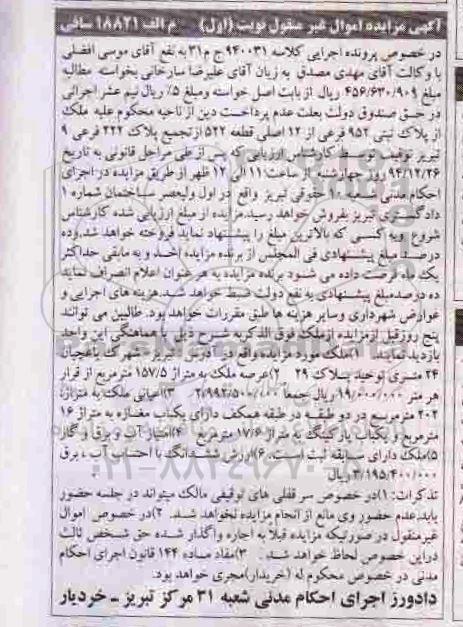 آگهی مزایده اموال غیر منقول نوبت (اول) م الف ۱۸۸۲۱ سافی
در خصوص پرونده اجرایی کلاسه ۹۴۰۰۳۱ ج م ۳۱ به نفع آقای موسی افضلی
با وکالت آقای مهدی مصدق به زیان آقای علیرضا سارخانی بخواسته مطالبه
مبلغ ۴۵۶/۶۳۰/۹۰۹ ریال از بابت اصل خواسته ومبلغ ۵٪ ریال نیم عشر اجرائی
در حق صندوق دولت بعلت عدم پرداخت دین از ناحیه محکوم علیه ملک
از پلاک ثبتی ۹۵۲ فرعی از ۱۲ اصلی قطعه ۵۲۲ از تجمیع پلاک ۲۲۲ فرعی ۹
تبریز توقیف توسط کارشناس ارزیابی که پس از طی مراحل قانونی به تاریخ
۹۴/۱۲/۲۶ روز چهارشنبه از ساعت ۱۱ الی ۱۲ ظهر از طریق مزایده در اجرای
احکام مدنی شعبه ۳۱ حقوقی تبریز واقع در اول ولیعصر ساختمان شماره ۱
دادگستری تبریز بفروش خواهد رسید.مزایده از مبلغ ارزیابی شده کارشناس
شروع وبه کسی که بالاترین مبلغ را پیشنهاد نماید فروخته خواهد شد.وده
درصد مبلغ پیشنهادی فی المجلس از برنده مزایده اخذ و به مابقی حداکثر
یک ماه فرصت داده می شود برنده مزایده به هر عنوان اعلام انصراف نماید
ده درصد مبلغ پیشنهادی به نفع دولت ضبط خواهد شد.هزینه های اجرایی و
عوارض شهرداری وسایر هزینه ها طبق مقررات خواهد بود. طالبین می توانند
پنج روز قبل از مزایده از ملک فوق الذکر به شرح ذیل با هماهنگی این واحد
بازدید نمایند. ۱)ملک مورد مزایده واقع در آدرس تبریز- شهرک باغمیشه
۲۴ متری توحید پلاک ۲۹ ۲)عرصه ملک به متراژ ۱۵۷/۵ مترمربع از قرار
هر متر ۱۹/۰۰۰/۰۰۰ ریال جمعا ۲/۹۹۲/۵۰۰/۰۰۰ ۳)اعیانی ملک به متراژ
۲۰۲ مترمربع در دو طبقه در طبقه همکف دارای یکباب مغازه به متراژ ۱۶
مترمربع و یکباب پارکینگ به متراژ ۱۷/۶ مترمربع ۴)امتیاز آب و برق و گاز
۵)ملک دارای سابقه ثبت است. ۶)ارزش ششدانگ با احتساب آب ، برق
۳/۱۹۵/۴۰۰/۰۰۰ ریال
تذکرات: ۱)در خصوص سر قفلی های توقیفی مالک میتواند در جلسه حضور
یابد.عدم حضور وی مانع از انجام مزایده نخواهد شد. ۲)در خصوص اموال
غیرمنقول در صورتیکه مزایده قبلا به اجاره واگذار شده حق شخص ثالث
در این خصوص لحاظ خواهد شد. ۳)مفاد ماده ۱۴۴ قانون اجرای احکام
مدنی در خصوص محکوم له (خریدار)مجری خواهد بود.
دادورز اجرای احکام مدنی شعبه ۳۱ مرکز تبریز ـ خردیار
۰۲۱-۸۸۳۴۹۶۷۰